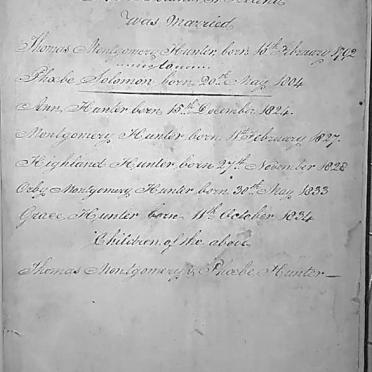 Was Married
Thomas Montgomery Hunter born 16th February 1792
to
Phoebe Solomon born 20th May 1804
Ann Hunter born 15th December 1824.
Montgomery Hunter born 11th February 1827.
Highland Hunter born 27th November 1828
Orby Montgomery Hunter born 30th May 1833
Grace Hunter born 11th October 1834
Children of the above
Thomas Montgomery & Phoebe Hunter